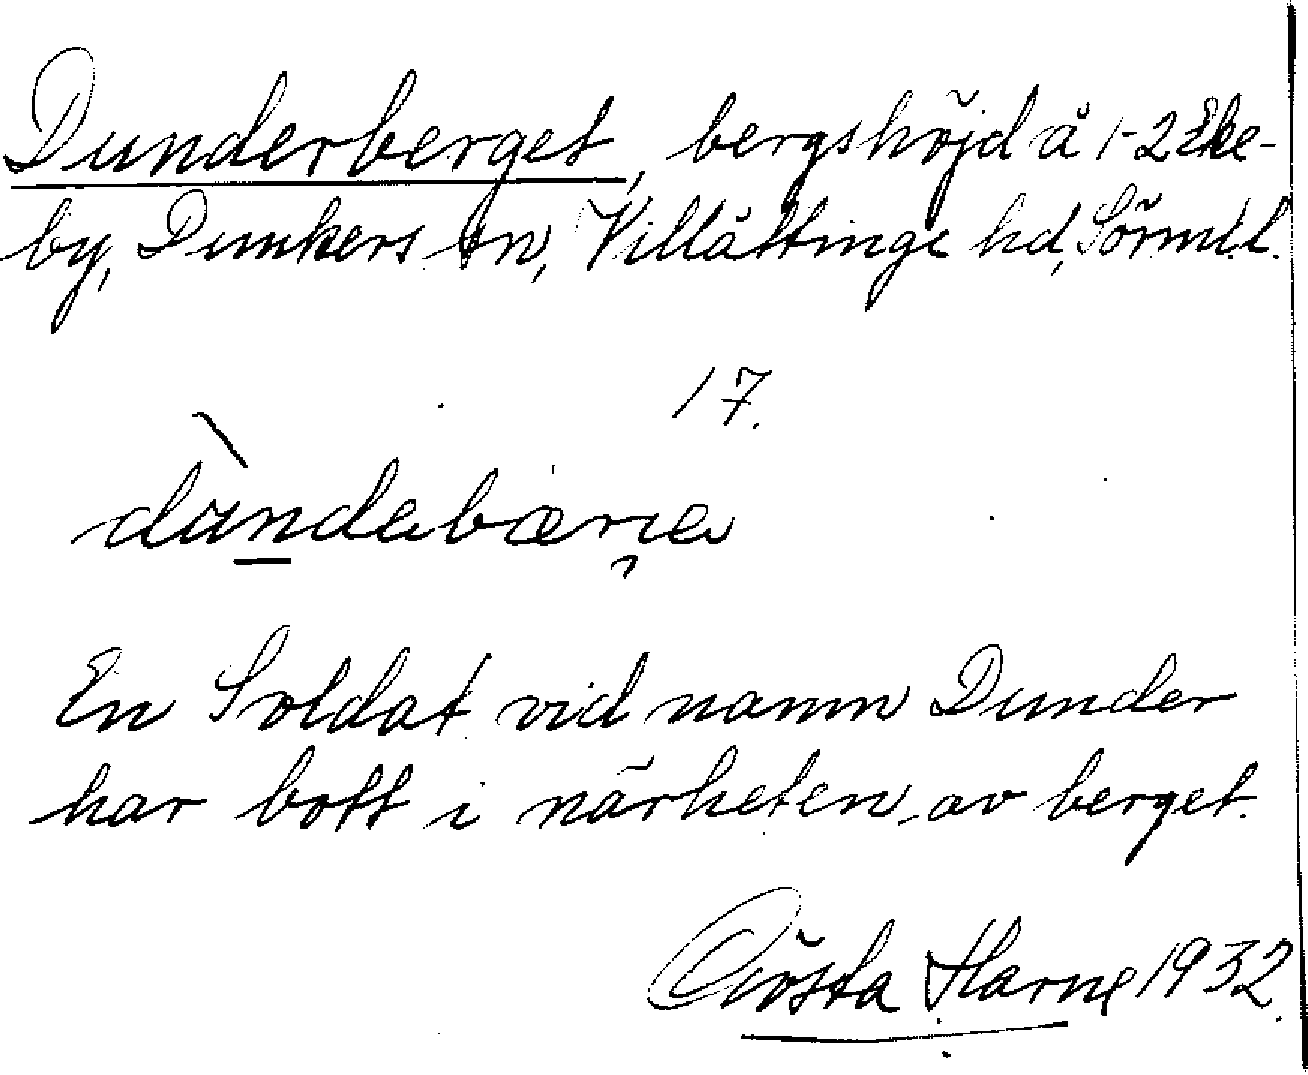 Dunderberget, bergshöjd å 1-2 Eke-
by, Dunkers sn, Villåttinge hd, Sörmld.
17.
dùndəbærjə
En Soldat vid namn Dunder
har bott i närheten av berget.
Gösta Harne 1932.